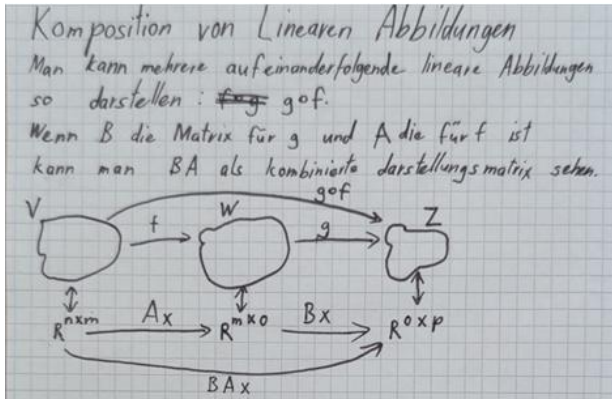 Komposition von Linearen Abbildungen
Man kann mehrere aufeinanderfolgende lineare Abbildungen
so darstellen : f∘g g∘f.
Wenn B die Matrix für g und A die für f ist
kann man BA als kombinierte darstellungsmatrix sehen.
g∘f
V f W g Z
R^{n×m} Ax R^{m×o} Bx R^{o×p}
BAx